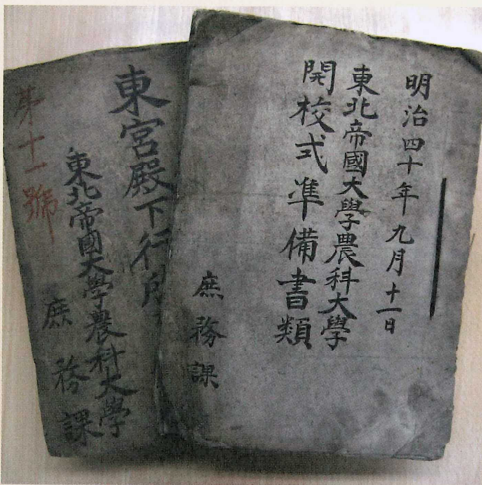 明治四十年九月十一日
東北帝國大學農科大學
開校式準備書類
庶務課
東宮殿下行
東北帝國大學農科大學
庶務課
第十一號